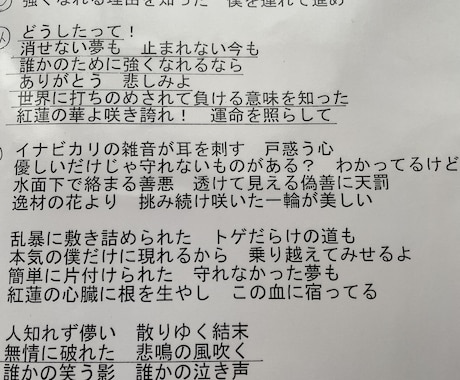 強くなれる理由を知った　僕を連れて進め
どうしたって！
消せない夢も　止まれない今も
誰かのために強くなれるなら
ありがとう　悲しみよ
世界に打ちのめされて負ける意味を知った
紅蓮の華よ咲き誇れ！　運命を照らして
イナビカリの雑音が耳を刺す　戸惑う心
優しいだけじゃ守れないものがある？　わかってるけど
水面下で絡まる善悪　透けて見える偽善に天罰
逸材の花より　挑み続け咲いた一輪が美しい
乱暴に敷き詰められた　トゲだらけの道も
本気の僕だけに現れるから　乗り越えてみせるよ
簡単に片付けられた　守れなかった夢も
紅蓮の心臓に根を生やし　この血に宿ってる
人知れず儚い　散りゆく結末
無情に破れた　悲鳴の風吹く
誰かの笑う影　誰かの泣き声